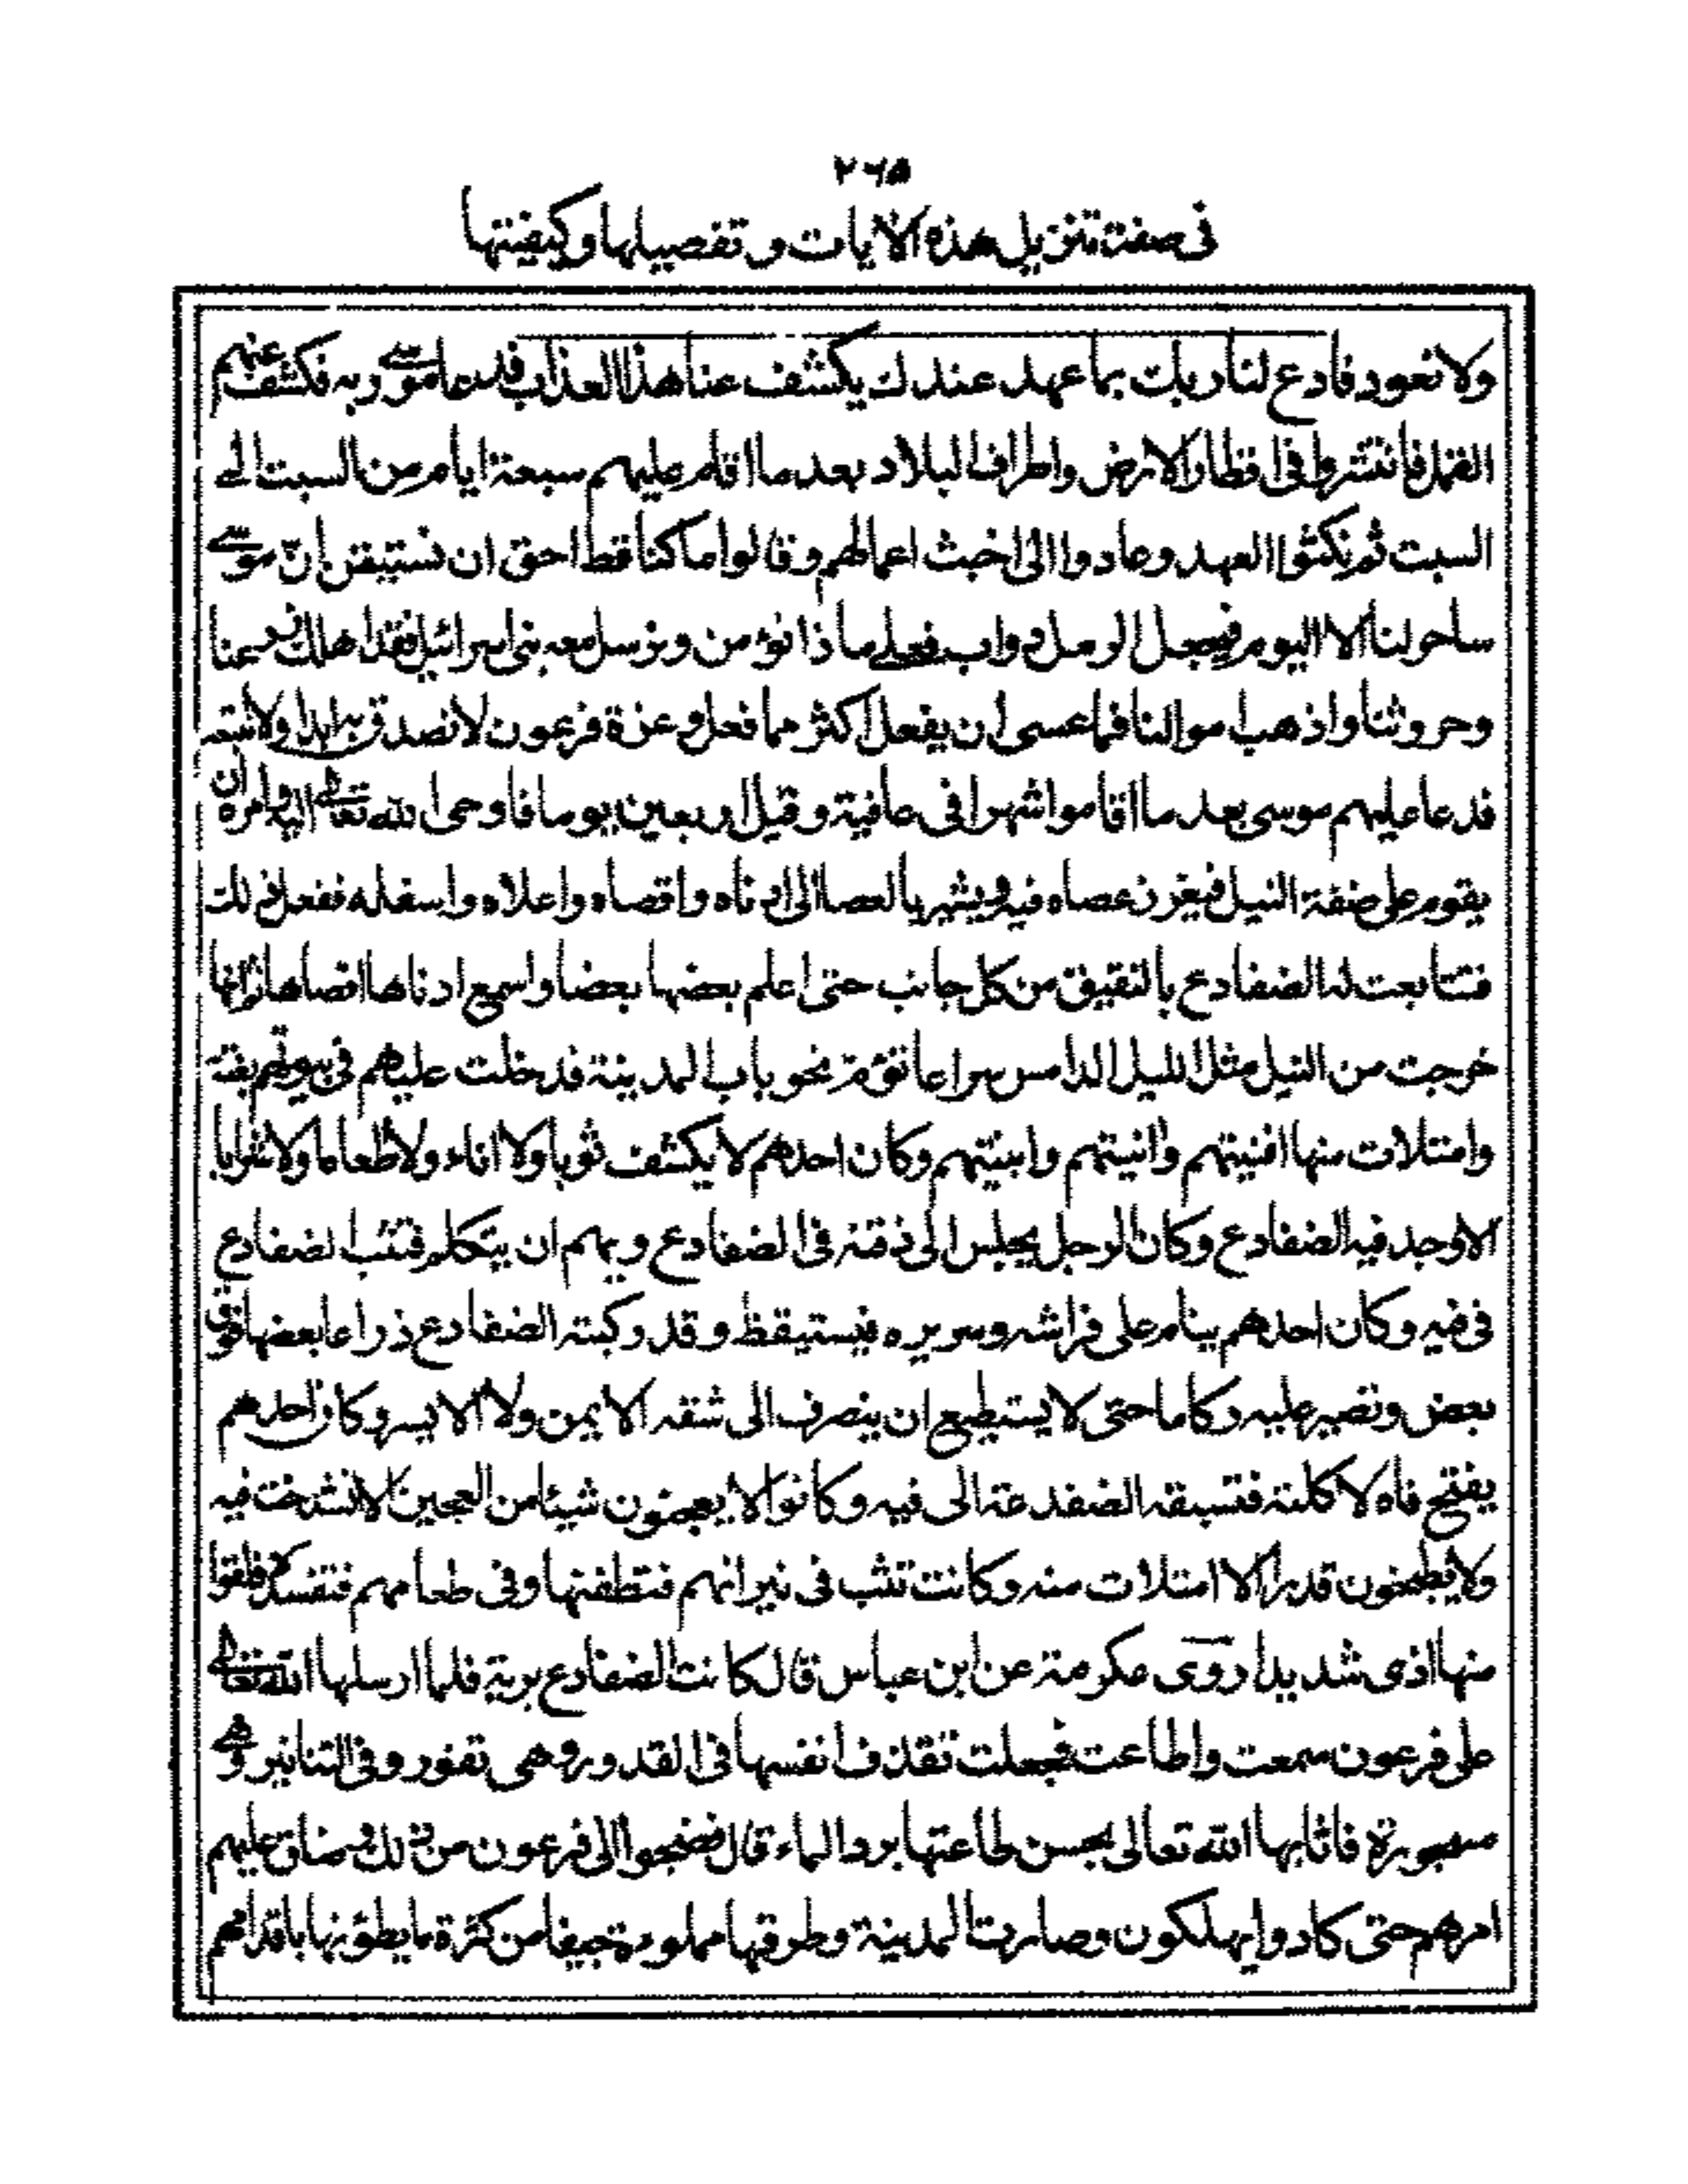 ٢٦٥
فى صفة تنزيل هذه الايات وتفصيلها وكيفيتها
ولا نعود فادع لنا ربك بما عهد عندك يكشف عنا هذا العذاب فدعا موسى ربه فكشف عنهم
القمل فانتشروا فى اقطار الارض واطراف البلاد بعد ما اقام عليهم سبعة ايام من السبت الى
السبت ثم نكثوا العهد وعادوا الى اخبث اعمالهم وقالوا ما كنا قط احق ان نستيقن ان موسى
ساحر لنا الا اليوم فيجعل الرمل دواب فعلى ماذا نؤمن ونرسل معه بنى اسرائيل فقد اهلك زرعنا
وحروثنا واذهب اموالنا فما عسى ان يفعل اكثر مما فعل وعزة فرعون لا نصدق به ابدا ولا نتبعه
فدعا عليهم موسى بعد ما اقاموا شهرا فى عافية وقيل اربعين يوما فاوحى الله تعالى اليه وامره ان
يقوم على ضفة النيل فيغرز عصاه فيه ويشير بالعصا الى ادناه واقصاه واعلاه واسفله ففعل ذلك
فتتابعت له الضفادع بالنقيق من كل جانب حتى اعلم بعضها بعضا واسمع ادناها اقصاها ثم انها
خرجت من النيل مثل الليل الدامس سراعا تؤم نحو باب المدينة فدخلت عليهم فى بيوتهم بغتة
وامتلات منها افنيتهم وانيتهم وابنيتهم وكان احدهم لا يكشف ثوبا ولا اناء ولا طعاما ولا شرابا
الا وجد فيه الضفادع وكان الرجل يجلس الى ذقنه فى الضفادع ويهم ان يتكلم فتثب الضفادع
فى فيه وكان احدهم ينام على فراشه وسريره فيستيقظ وقد ركبته الضفادع ذراعا بعضها فوق
بعض وتصير عليه ركاما حتى لا يستطيع ان ينصرف الى شقه الايمن ولا الايسر وكان احدهم
يفتح فاه لاكلته فتسبقه الضفدعة الى فيه وكانوا لا يعجنون شيئا من العجين الا نشدخت فيه
ولا يطبخون قدرا الا امتلات منه وكانت تثب فى نيرانهم فتطفئها وفى طعامهم فتفسده فلقوا
منها اذى شديدا روى عكرمة عن ابن عباس قال كانت الضفادع برية فلما ارسلها الله تعالى
على فرعون سمعت واطاعت فجعلت تقذف انفسها فى القدور وهى تفور وفى التنانير وهى
مسجورة فاثابها الله تعالى بحسن طاعتها برد الماء قال فضجوا الى فرعون من ذلك وضاق عليهم
امرهم حتى كادوا يهلكون وصارت المدينة وطرقها مملوءة جيفا من كثرة ما يطؤنها باقدامهم